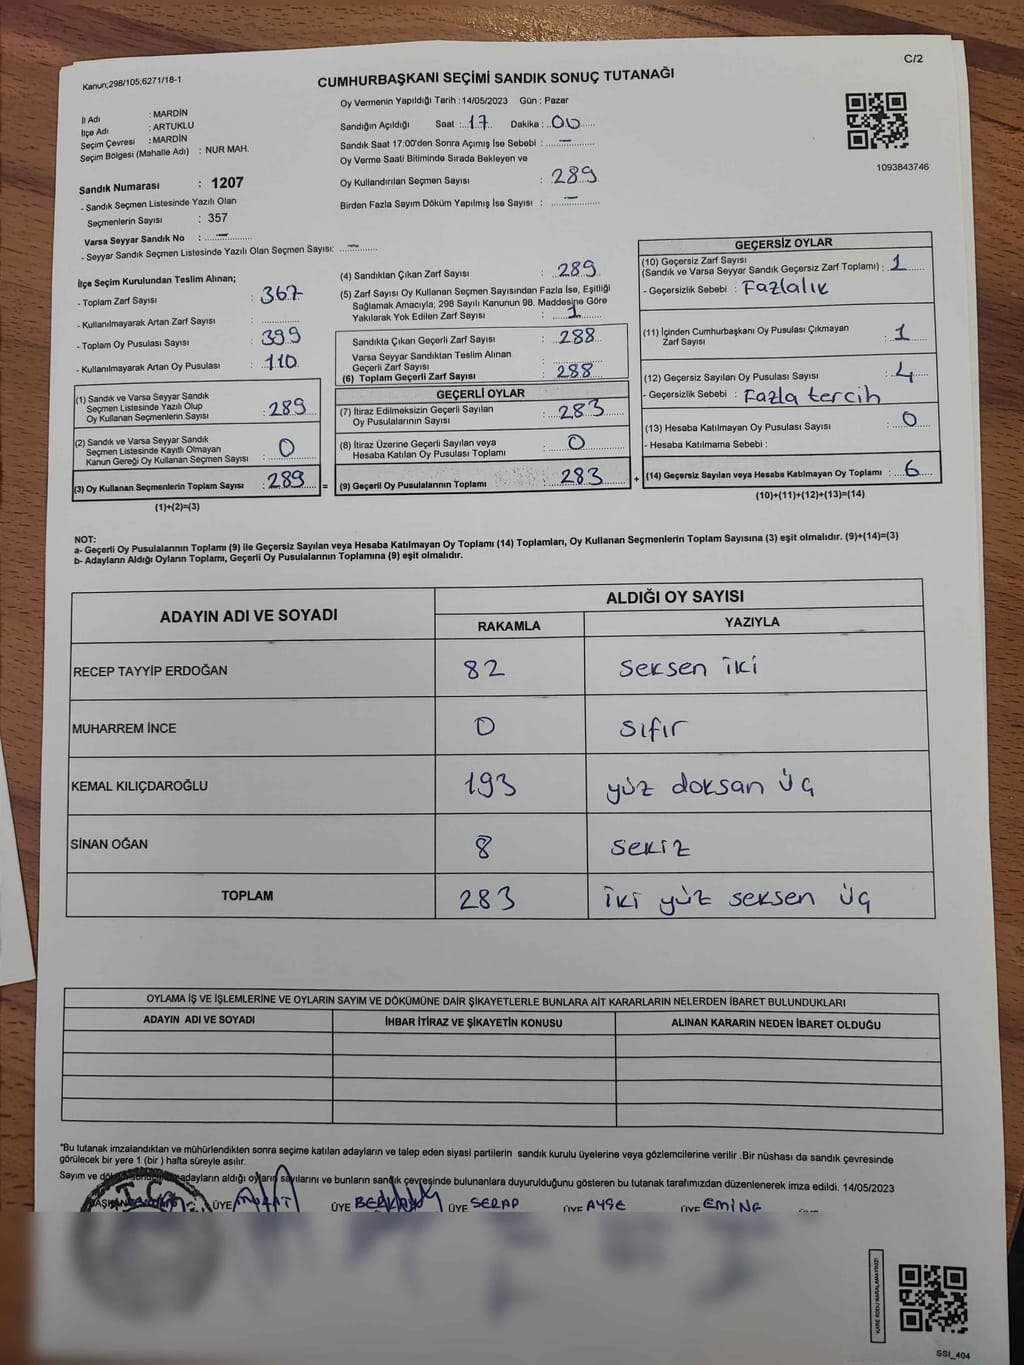 Kanun;298/105,6271/18-1
C/2
CUMHURBAŞKANI SEÇİMİ SANDIK SONUÇ TUTANAĞI
İl Adı : MARDİN
İlçe Adı : ARTUKLU
Seçim Çevresi : MARDİN
Seçim Bölgesi (Mahalle Adı) : NUR MAH.
Sandık Numarası : 1207
- Sandık Seçmen Listesinde Yazılı Olan
Seçmenlerin Sayısı : 357
Varsa Seyyar Sandık No : –
- Seyyar Sandık Seçmen Listesinde Yazılı Olan Seçmen Sayısı: –
Oy Vermenin Yapıldığı Tarih : 14/05/2023 Gün : Pazar
Sandığın Açıldığı Saat : 17 Dakika : 00
Sandık Saat 17:00'den Sonra Açımış İse Sebebi : –
Oy Verme Saati Bitiminde Sırada Bekleyen ve
Oy Kullandırılan Seçmen Sayısı : 289
Birden Fazla Sayım Döküm Yapılmış İse Sayısı : –
1093843746
İlçe Seçim Kurulundan Teslim Alınan;
- Toplam Zarf Sayısı : 367
- Kullanılmayarak Artan Zarf Sayısı :
- Toplam Oy Pusulası Sayısı : 399
- Kullanılmayarak Artan Oy Pusulası : 110
(1) Sandık ve Varsa Seyyar Sandık
Seçmen Listesinde Yazılı Olup
Oy Kullanan Seçmenlerin Sayısı : 289
(2) Sandık ve Varsa Seyyar Sandık
Seçmen Listesinde Kayıtlı Olmayan
Kanun Gereği Oy Kullanan Seçmen Sayısı : 0
(3) Oy Kullanan Seçmenlerin Toplam Sayısı : 289 =
(1)+(2)=(3)
(4) Sandıktan Çıkan Zarf Sayısı : 289
(5) Zarf Sayısı Oy Kullanan Seçmen Sayısından Fazla İse, Eşitliği
Sağlamak Amacıyla; 298 Sayılı Kanunun 98. Maddesine Göre
Yakılarak Yok Edilen Zarf Sayısı : 1
Sandıkta Çıkan Geçerli Zarf Sayısı : 288
Varsa Seyyar Sandıktan Teslim Alınan
Geçerli Zarf Sayısı :
(6) Toplam Geçerli Zarf Sayısı : 288
GEÇERLİ OYLAR
(7) İtiraz Edilmeksizin Geçerli Sayılan
Oy Pusulasının Sayısı : 283
(8) İtiraz Üzerine Geçerli Sayılan veya
Hesaba Katılan Oy Pusulası Toplamı : 0
(9) Geçerli Oy Pusulalarının Toplamı : 283 +
GEÇERSİZ OYLAR
(10) Geçersiz Zarf Sayısı
(Sandık ve Varsa Seyyar Sandık Geçersiz Zarf Toplamı) : 1
- Geçersizlik Sebebi : Fazlalık
(11) İçinden Cumhurbaşkanı Oy Pusulası Çıkmayan
Zarf Sayısı : 1
(12) Geçersiz Sayılan Oy Pusulası Sayısı : 4
- Geçersizlik Sebebi : Fazla tercih
(13) Hesaba Katılmayan Oy Pusulası Sayısı : 0
- Hesaba Katılmama Sebebi :
(14) Geçersiz Sayılan veya Hesaba Katılmayan Oy Toplamı : 6
(10)+(11)+(12)+(13)=(14)
NOT:
a- Geçerli Oy Pusulalarının Toplamı (9) ile Geçersiz Sayılan veya Hesaba Katılmayan Oy Toplamı (14) Toplamları, Oy Kullanan Seçmenlerin Toplam Sayısına (3) eşit olmalıdır. (9)+(14)=(3)
b- Adayların Aldığı Oyların Toplamı, Geçerli Oy Pusulalarının Toplamına (9) eşit olmalıdır.
ADAYIN ADI VE SOYADI ALDIĞI OY SAYISI
RAKAMLA YAZIYLA
RECEP TAYYİP ERDOĞAN 82 seksen iki
MUHARREM İNCE 0 sıfır
KEMAL KILIÇDAROĞLU 193 yüz doksan üç
SİNAN OĞAN 8 sekiz
TOPLAM 283 iki yüz seksen üç
OYLAMA İŞ VE İŞLEMLERİNE VE OYLARIN SAYIM VE DÖKÜMÜNE DAİR ŞİKAYETLERLE BUNLARA AİT KARARLARIN NELERDEN İBARET BULUNDUKLARI
ADAYIN ADI VE SOYADI İHBAR İTİRAZ VE ŞİKAYETİN KONUSU ALINAN KARARIN NEDEN İBARET OLDUĞU
"Bu tutanak imzalandıktan ve mühürlendikten sonra seçime katılan adayların ve talep eden siyasi partilerin sandık kurulu üyelerine veya gözlemcilerine verilir .Bir nüshası da sandık çevresinde
görülecek bir yere 1 (bir ) hafta süreyle asılır.
Sayım ve adayların aldığı oyların sayılarını ve bunların sandık çevresinde bulunanlara duyurulduğunu gösteren bu tutanak tarafımızdan düzenlenerek imza edildi. 14/05/2023
T.C.
BAŞKAN ÜYE MURAT ÜYE ÜYE SERAP ÜYE AYŞE ÜYE EMİNE
KARE KODU KARALAMAYINIZ!
SSI_404